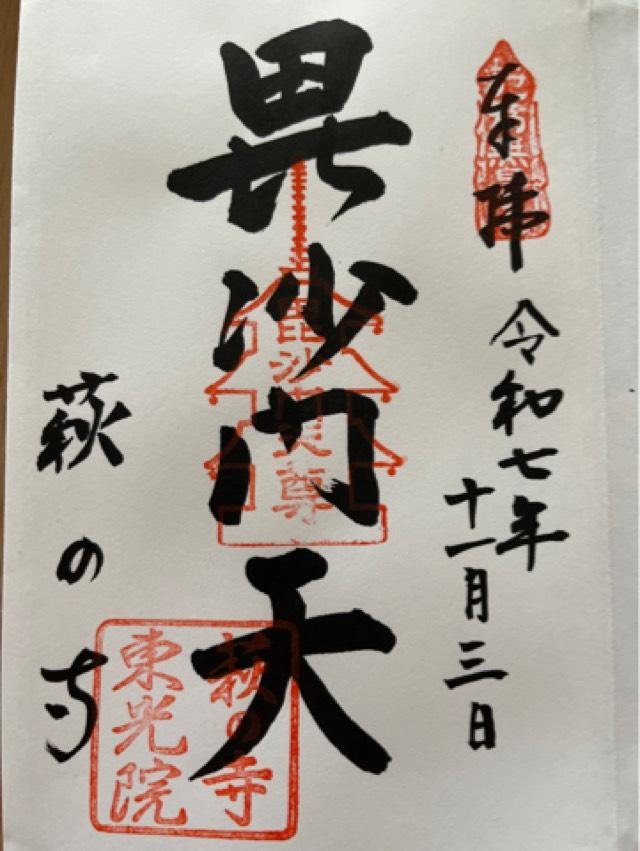 奉拝
令和七年
十一月三日
毘沙門天
毘沙門天尊
萩の寺
萩の寺
東光院